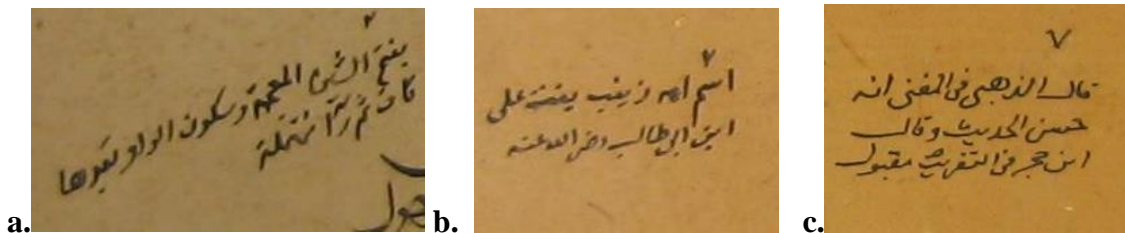 a.
٧
بفتح الشين المعجمة وسكون الواو بعدها
كاف ثم راء مهملة
b.
٧
اسم امه زينب بنت على
ابن ابى طالب رضى الله عنه
c.
٧
قال الذهبى فى المغنى انه
حسن الحديث وقال
ابن حجر فى التقريب مقبول